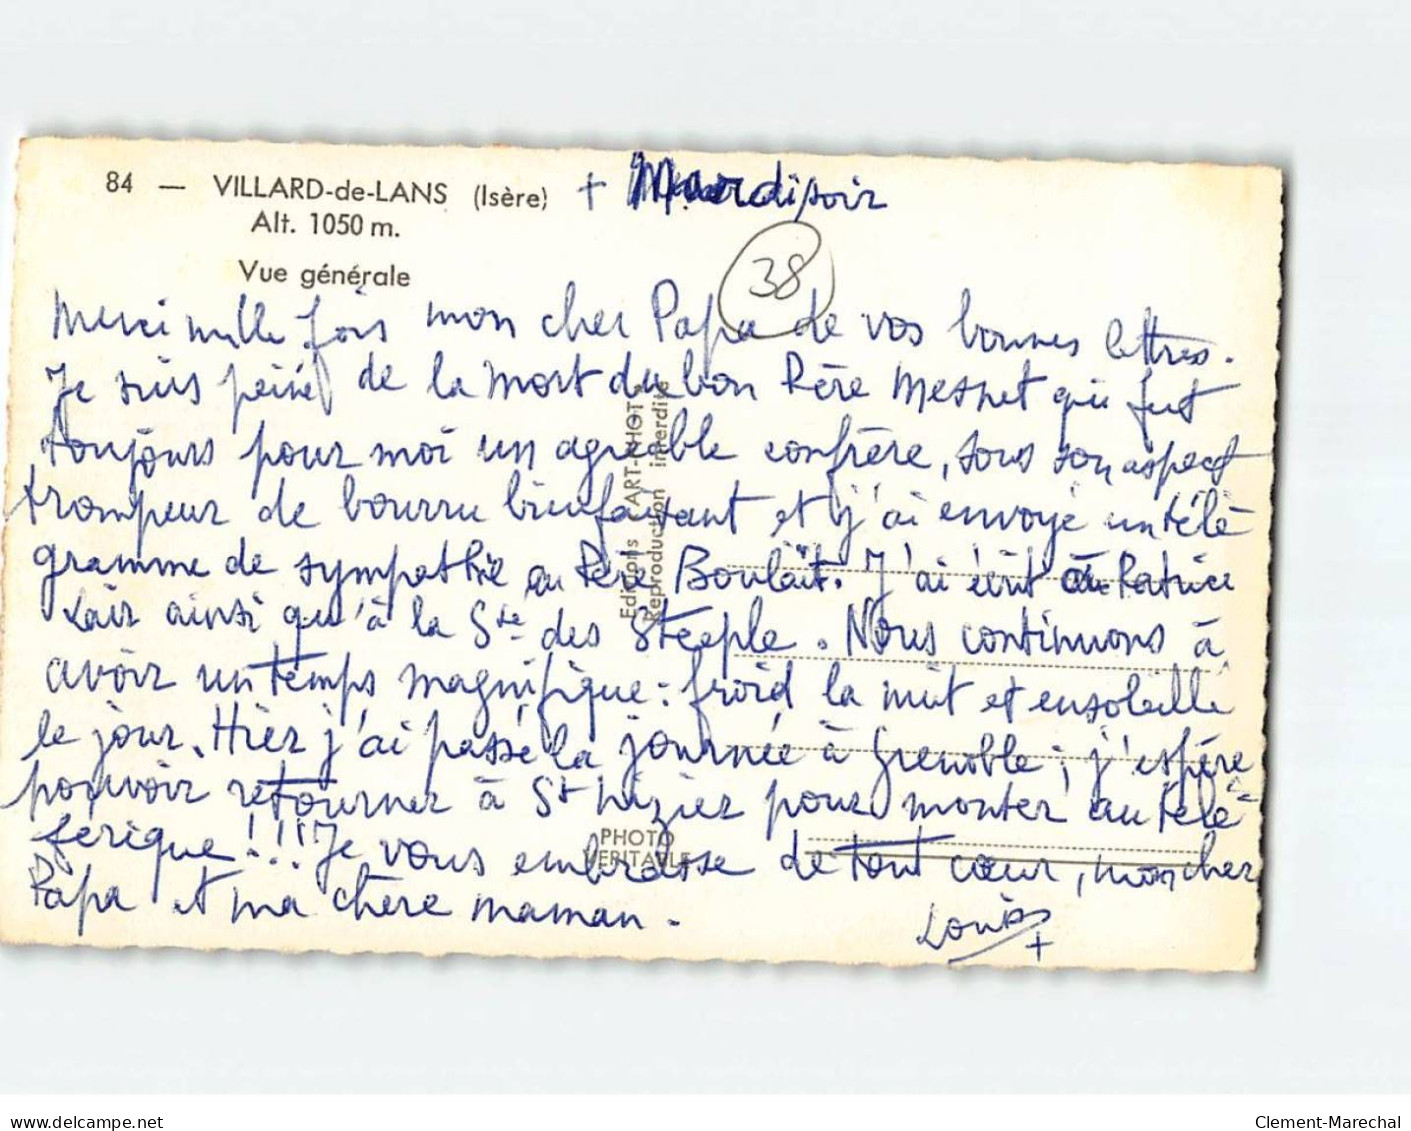 84 — VILLARD-de-LANS (Isère) + Mardi soir
Alt. 1050 m.
Vue générale
38
Merci mille fois mon cher Papa de vos bonnes lettres.
Je suis peiné de la mort du bon Père Mesnet qui fut
toujours pour moi un agréable confrère, sous son aspect
trompeur de bourru bienfaisant et j'ai envoyé un télé-
gramme de sympathie au Père Boulait. J'ai écrit à Patrice
ainsi qu'à la Sté des Steeple. Nous continuons à
avoir un temps magnifique : froid la nuit et ensoleillé
le jour. Hier j'ai passé la journée à Grenoble ; j'espère
pouvoir retourner à St Nizier pour monter au télé-
férique !!! Je vous embrasse de tout cœur, mon cher
Papa et ma chère maman.
Louis
+
Editions "ART-PHOTO"
Reproduction interdite
PHOTO
VERITABLE
www.delcampe.net
Clement-Marechal